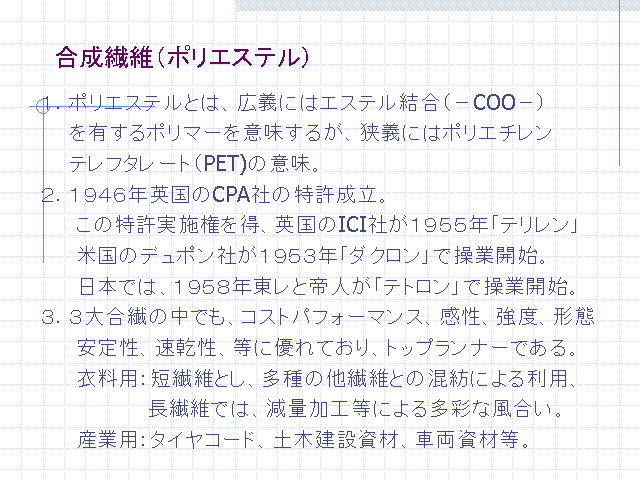 合成繊維（ポリエステル）
１．ポリエステルとは、広義にはエステル結合（－COO－）
を有するポリマーを意味するが、狭義にはポリエチレン
テレフタレート（PET)の意味。
２．１９４６年英国のCPA社の特許成立。
この特許実施権を得、英国のICI社が１９５５年「テリレン」
米国のデュポン社が１９５３年「ダクロン」で操業開始。
日本では、１９５８年東レと帝人が「テトロン」で操業開始。
３．３大合繊の中でも、コストパフォーマンス、感性、強度、形態
安定性、速乾性、等に優れており、トップランナーである。
衣料用：短繊維とし、多種の他繊維との混紡による利用、
長繊維では、減量加工等による多彩な風合い。
産業用：タイヤコード、土木建設資材、車両資材等。